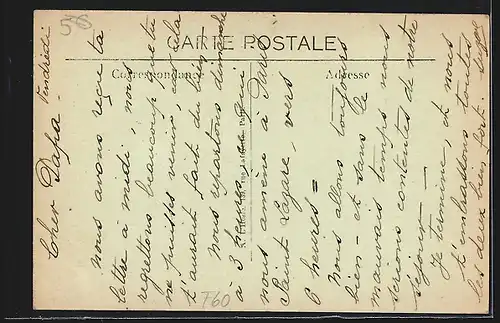 56
CARTE POSTALE
Correspondance
Adresse
Vendredi
Cher Papa
nous avons reçu ta
lettre à midi, nous
regrettons beaucoup que tu
ne puisses venir, cela
t'aurait fait du bien
nous repartons dimanche
à 3 heures, ce qui
nous amène à Paris
Saint Lazare, vers
6 heures =
nous allons toujours
bien - et sans le
mauvais temps nous
serions contentes de notre
séjour —
Je termine, et nous
t'embrassons toutes
les deux bien fort.
T60